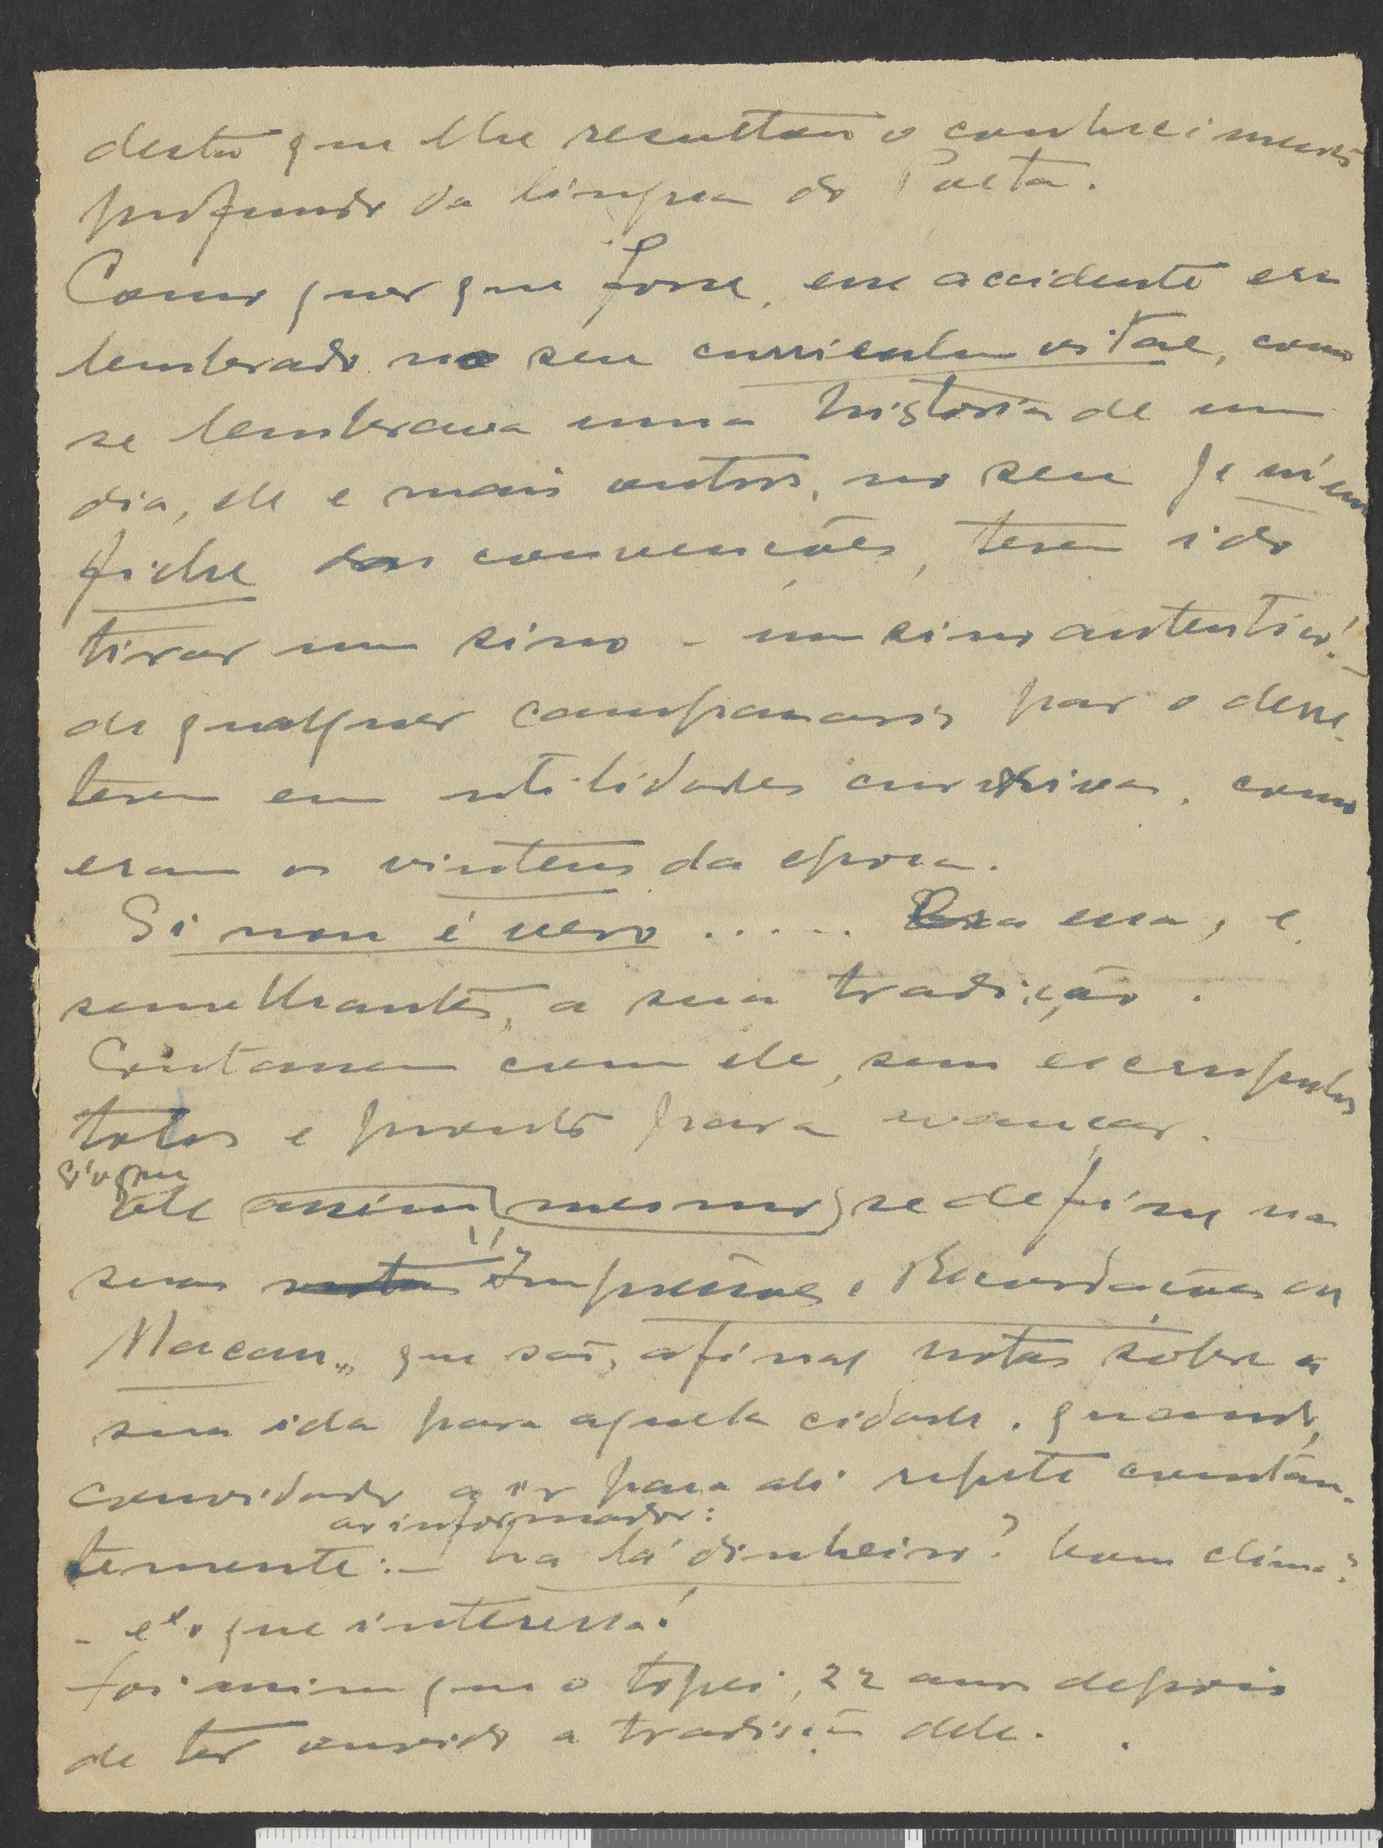 desta que lhe resultou o conhecimento
profundo da lingua do Poeta.
Como quer que fosse, esse accidente era
lembrado no seu curriculum vitae, como
se lembrava uma historia de um
dia, ele e mais outros, no seu je m'en
fiche das convenções, terem ido
tirar um sino - um sino autentico! -
de qualquer campanario par o derre-
terem em utilidades cursivas, como
eram os vintens da epoca.
Si non é vero ..... Era essa, e
semelhantes, a sua tradição.
Contassem com ele, sem escrupulos
tolos e pronto para avançar.
Ele assim mesmo se define na
suas notas "Impressões e Recordações em
Macau", que são, afinal notas sobre a
sua ida para aquela cidade. quando,
convidado a ir para ali repete constan-
ao informador:
temente: - ha lá dinheiro? bom clima?
- é o que interessa!
Foi assim que o topei, 22 anos depois
de ter ouvido a tradição dele.